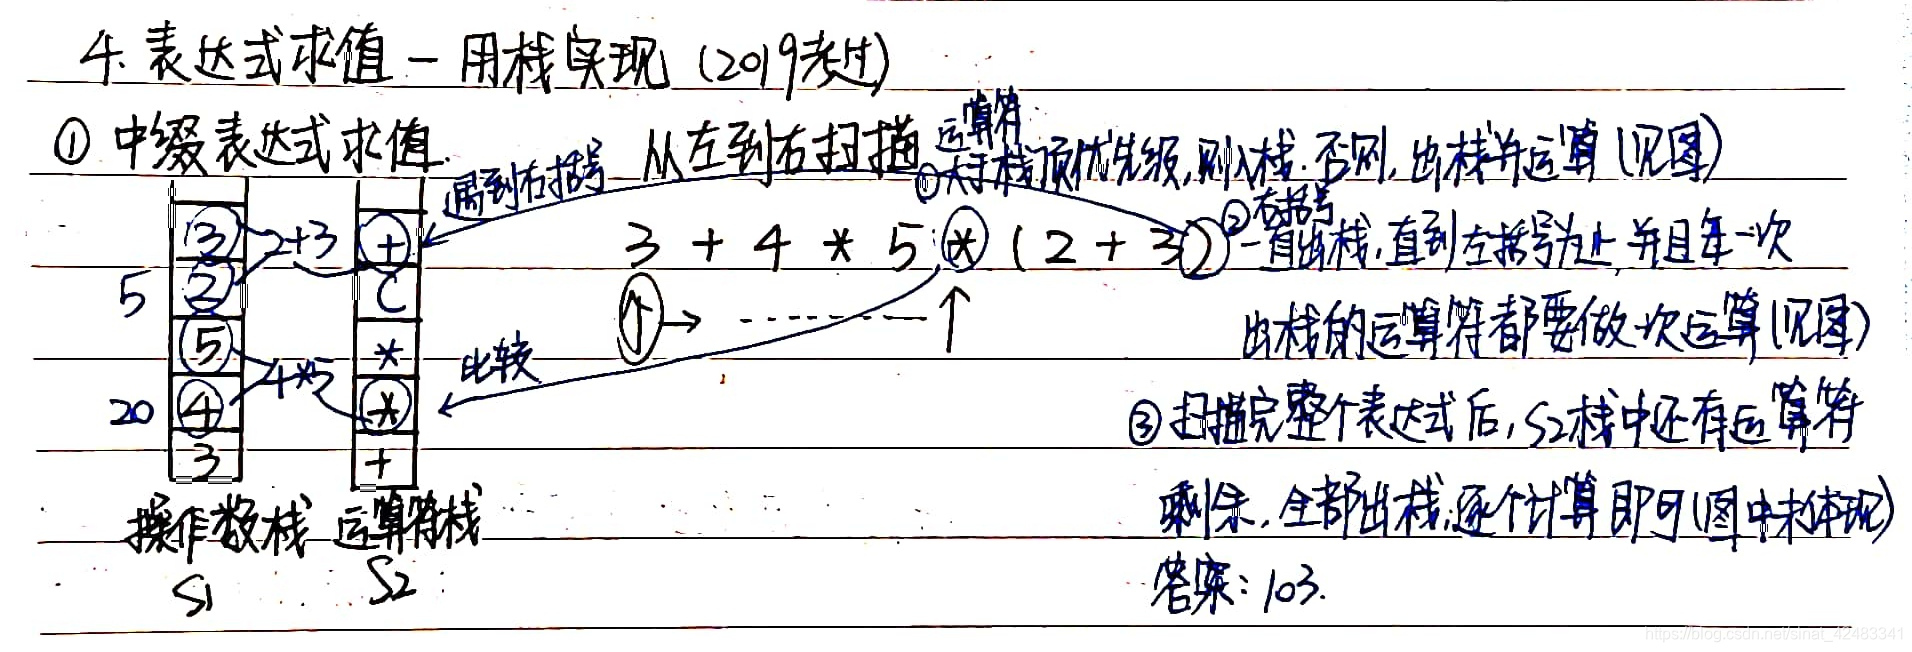 4. 表达式求值 - 用栈实现 (2019考过)
① 中缀表达式求值. 从左到右扫描
运算符
①大于栈顶优先级,则入栈.否则,出栈并运算(见图)
遇到右括号
②右括号
一直出栈,直到左括号为止,并且每一次
出栈的运算符都要做一次运算(见图)
③扫描完整个表达式后,S2栈中还有运算符
剩余,全部出栈,逐个计算即可(图中未体现)
答案:103.
3 + 4 * 5 * ( 2 + 3 )
比较
3 2+3 +
5 2 (
5 *
4*5
20 4 *
3 +
操作数栈 运算符栈
S1 S2
https://blog.csdn.net/sinat_42483341